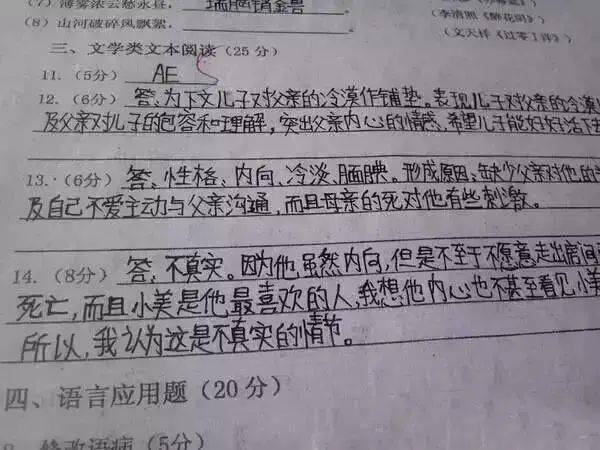 (7) 薄雾浓云愁永昼，瑞脑销金兽
(8) 山河破碎风飘絮，
(李清照《醉花阴》)
(文天祥《过零丁洋》)
三、文学类文本阅读（25分）
11.（5分） AE
12.（6分） 答：为下文儿子对父亲的冷漠作铺垫。表现儿子对父亲的冷漠
及父亲对儿子的包容和理解，突出父亲内心的情感，希望儿子能好好活下去
13.（6分） 答：性格：内向、冷淡、腼腆。形成原因：缺少父亲对他的
及自己不爱主动与父亲沟通，而且母亲的死对他有些刺激。
14.（8分） 答：不真实。因为他虽然内向，但是不至于不愿意走出房间
死亡，而且小美是他最喜欢的人，我想他内心也不甚至看见小美
所以，我认为这是不真实的情节。
四、语言应用题（20分）
修改语病（5分）